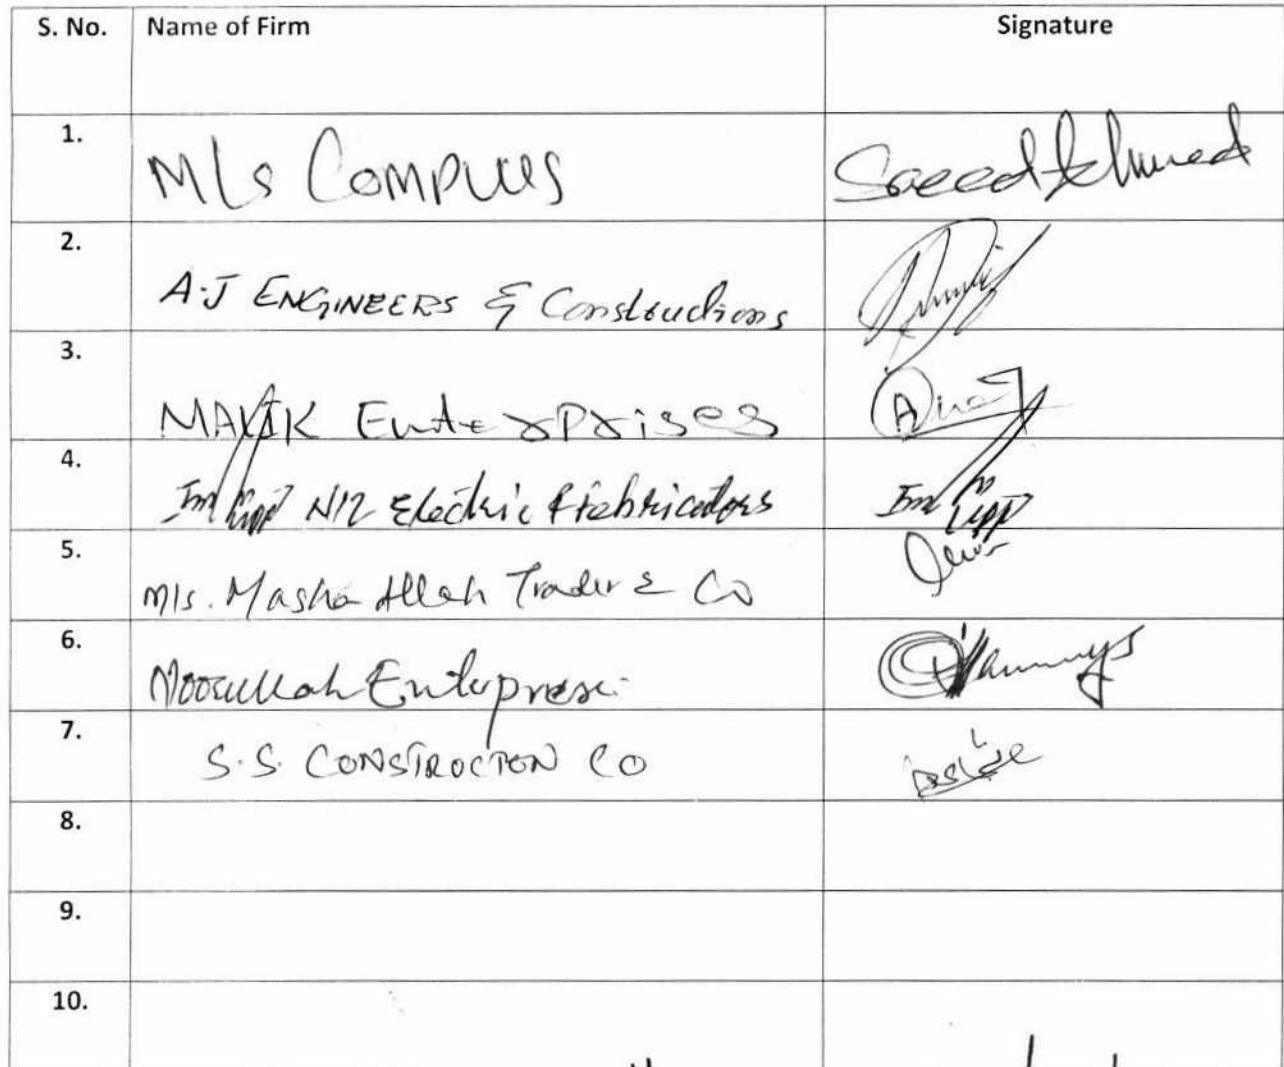 S. No. Name of Firm Signature
1. M/s Compues Saeed Ahmed
2. A.J ENGINEERS & Constructions
3. MALIK Enterprises
4. N12 Electric & Febricators
5. M/s. Masha Allah Trader & Co
6. Noorullah Enterprise
7. S.S. CONSTROCTON CO
8.
9.
10.